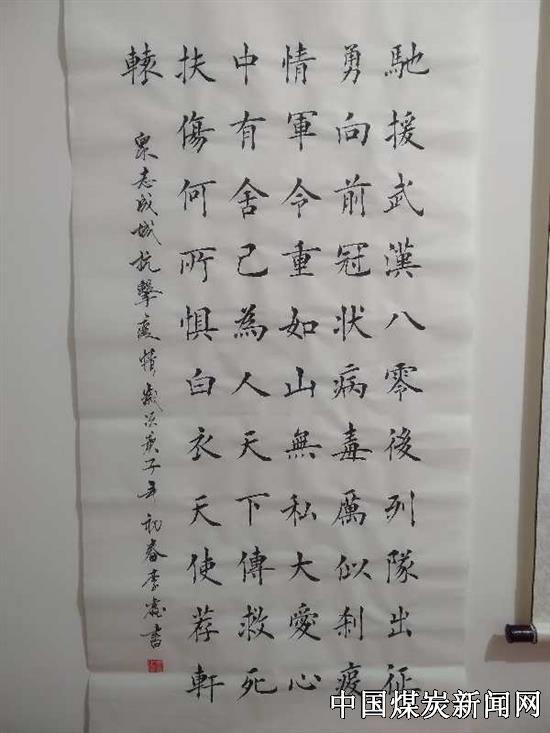 馳援武漢八零後列隊出征
勇向前冠狀病毒厲似刹疫
情軍令重如山無私大愛心
中有舍己為人天下傳救死
扶傷何所惧白衣天使荐軒
轅
衆志成城抗擊疫情歲次庚子年初春李書
中国煤炭新闻网